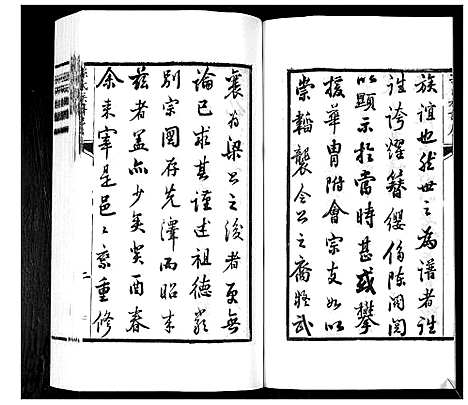 族誼也然世之為譜者誰
誰誇耀簪纓侈陳閥閱
以顯示於當時甚或攀
援華胄附會宗支如以
崇韜襲令公之裔蹤武
襄為梁公之後者更無
論已求其謹述祖德嚴
別宗圖存先澤而昭來
茲者盖亦少矣癸酉春
余来宰是邑邑蔡重修
二